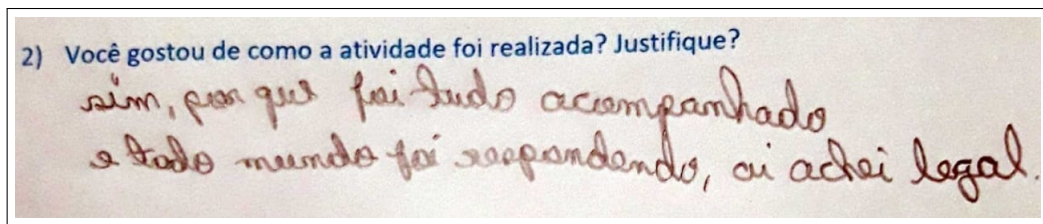 2) Você gostou de como a atividade foi realizada? Justifique?
sim, por que foi tudo acompanhado
e todo mundo foi respondendo, ai achei legal.